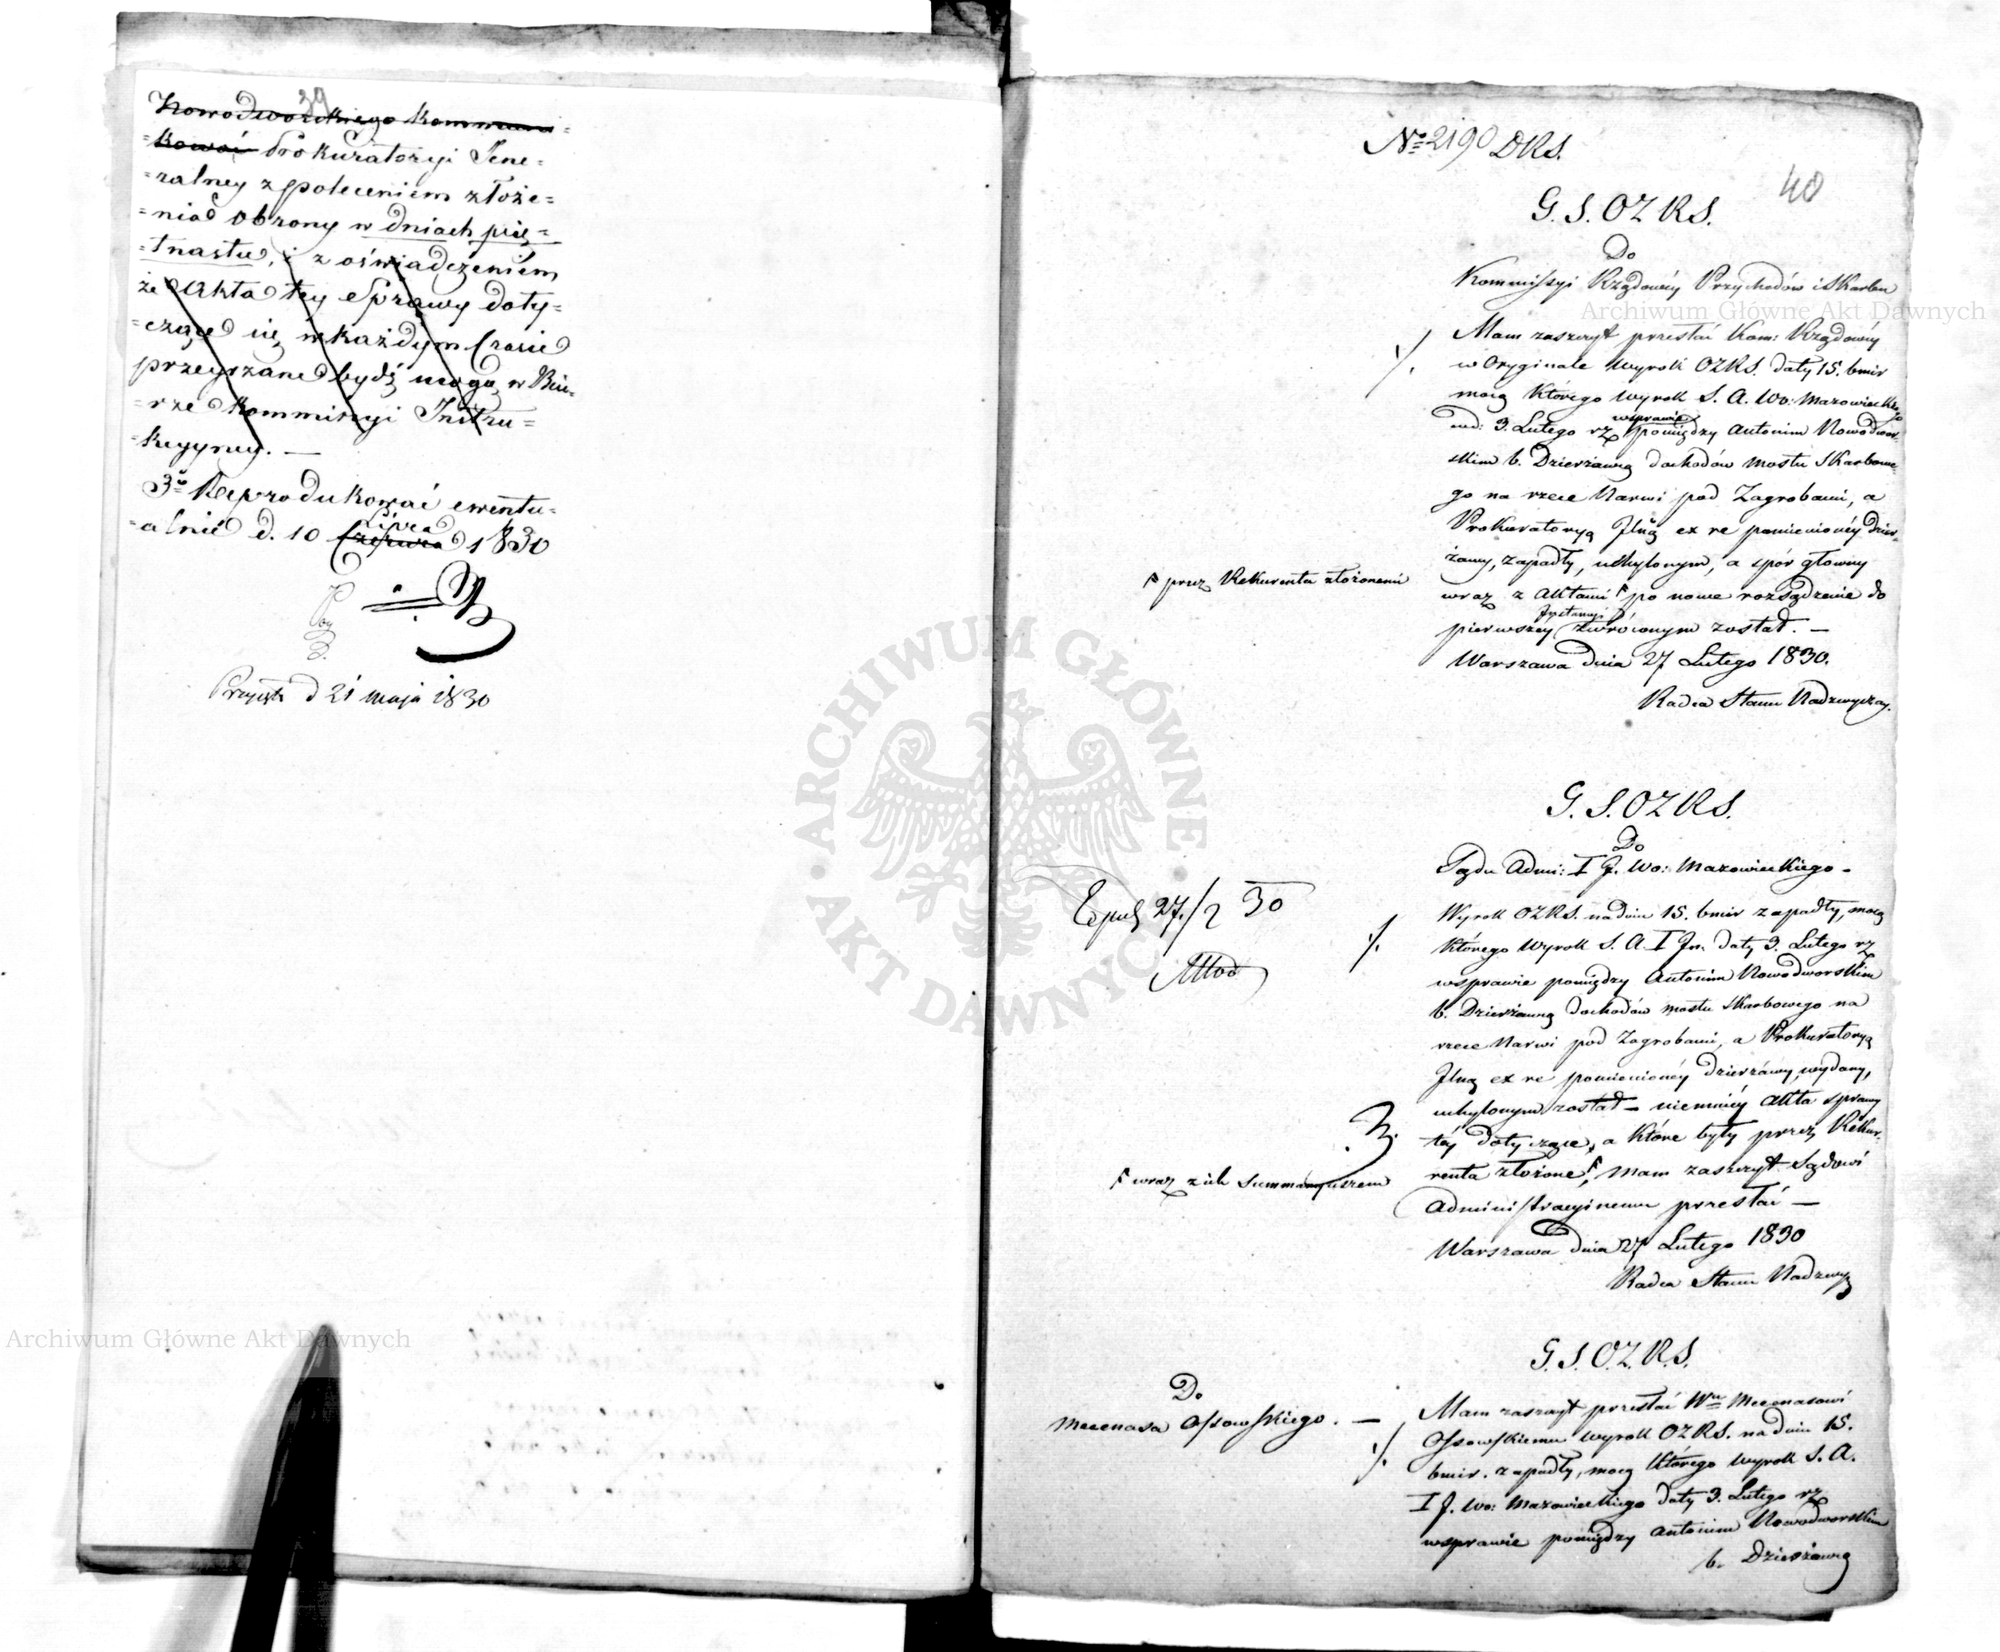 39
Nowodworskiego kommuni=
=kować Prokuratoryi Jene=
=ralney z poleceniem złoże=
=nia obrony w dniach pię=
=tnastu, i z oświadczeniem
że Akta tey Sprawy doty=
=czące się w każdym Czasie
przeyrzane bydź mogą w Biu=
=rze Kommissyi Instru=
=kcyyney. —
3o Reprodukować ewentu=
=alnie d. 10 Czerwca Lipca 1830
d 21 maja 1830
No 2190 DKS.
40
G. S. OZKS.
Do
Kommissyi Rządowéy Przychodów i Skarbu
Mam zaszczyt przesłać Kom: Rządowéy
w Oryginale Wyrok OZKS. daty 15. bmir
mocą którego wyrok S. A. Wo: Mazowieckiego
3. Lutego rz wsprawie pomiędzy Antonim Nowodwor=
skim b. Dzierżawcą dochodów mostu Skarbowe=
go na rzece Narwi pod Zagrobami, a
Prokuratoryą Jlną ex re pomienionéy dzier=
żawy, zapadły, uchylonym, a spór główny
wraz z Aktami przez Rekurenta złożonemi po nowe rozsądzenie do
pierwszey Jnstancyi zwróconym został. —
Warszawa dnia 27 Lutego 1830.
Radca Stanu Nadzwyczay.
G. S. OZKS.
Do
Sądu Admi: I J. Wo: Mazowieckiego -
Wyrok OZKS. na dniu 15. bmir zapadły, mocą
którego Wyrok S. A. I Jn. daty 3. Lutego rz
wsprawie pomiędzy Antonim Nowodworskim
b. Dzierżawcą dochodów mostu Skarbowego na
rzece Narwi pod Zagrobami, a Prokuratoryą
Jlną ex re pomienionéy dzierżawy, wydany,
uchylonym został — niemniéy Akta sprawy
téy dotyczące, a które były przez Rekur=
renta złożone, wraz z ich Summaryuszem mam zaszczyt Sądowi
Administracyjnemu przesłać —
Warszawa dnia 27 Lutego 1830
Radca Stanu Nadzwy
27/2 30
G. S. OZ. K. S.
Do
Mecenasa Ossowskiego. —
Mam zaszczyt przesłać Wu Mecenasowi
Ossowskiemu wyrok OZKS. na dniu 15.
bmir. zapadły, mocą którego wyrok S. A.
I J. Wo: Mazowieckiego daty 3. Lutego rz
wsprawie pomiędzy Antonim Nowodworskim
b. Dzierżawcą
Archiwum Główne Akt Dawnych
Archiwum Główne Akt Dawnych
ARCHIWUM GŁÓWNE · AKT DAWNYCH ·